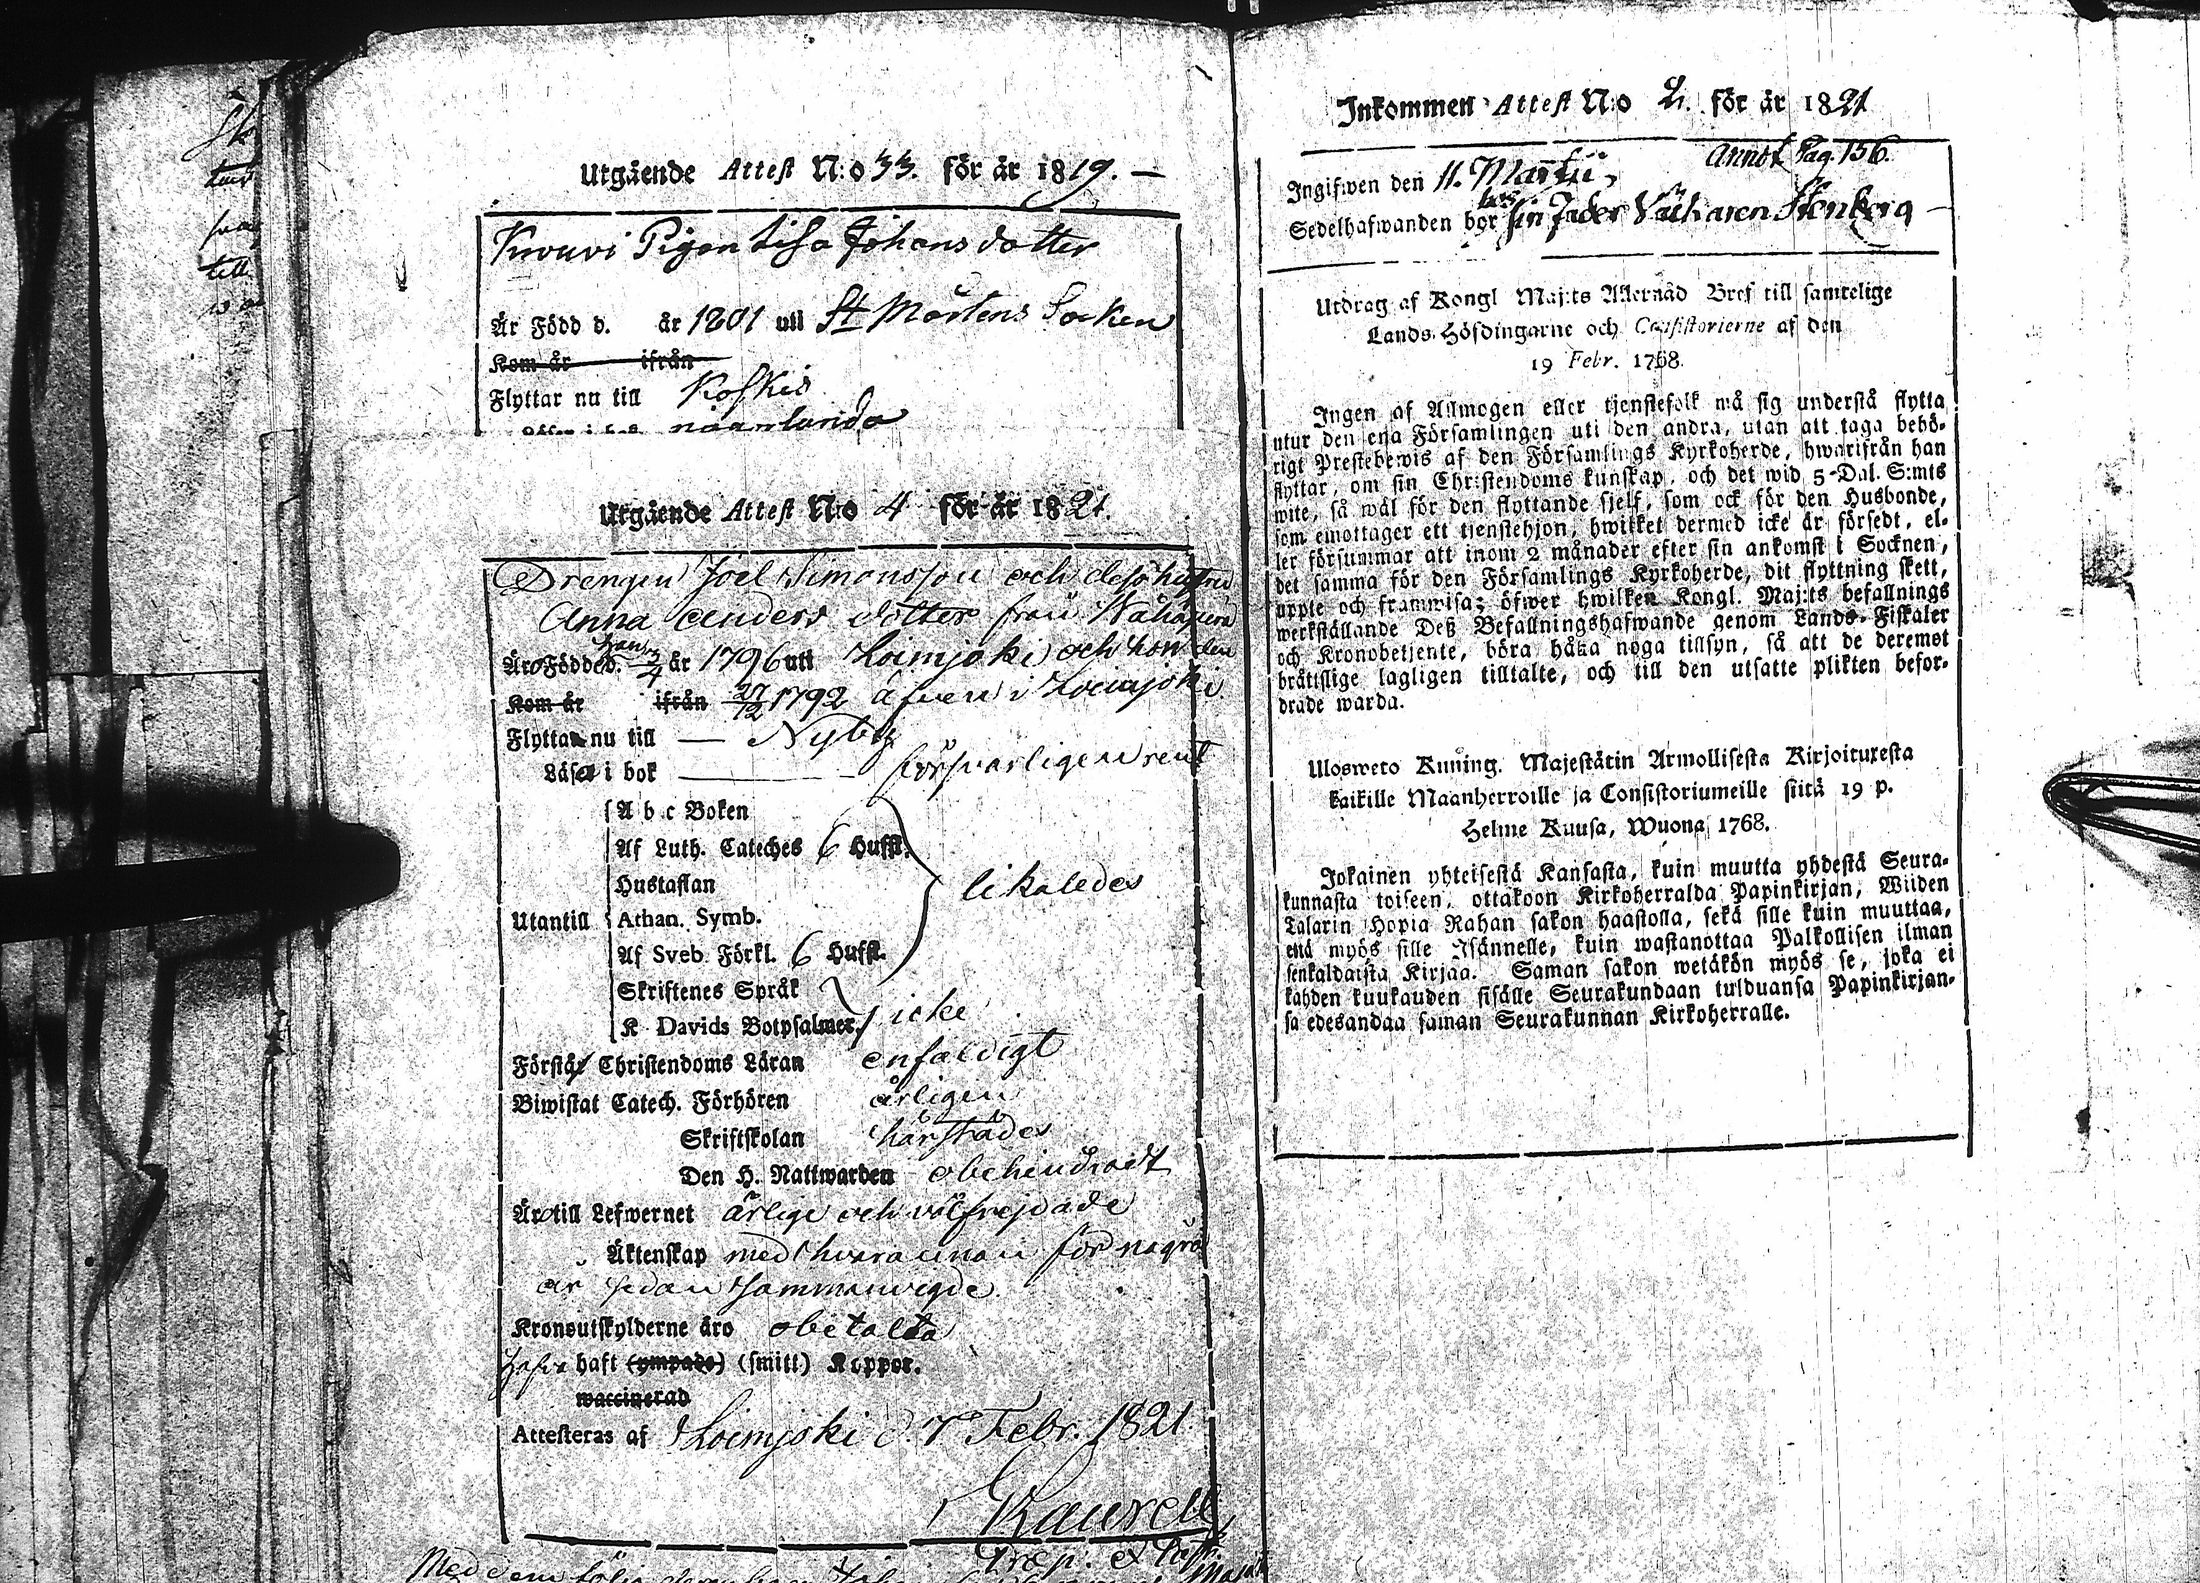 Utgående Attest N:o 33. för år 1819. —
Pigan Lisa Johansdotter
Är Född d. år 1801 uti St Mårtens Socken
Kom år ifrån
Flyttar nu till Koskis
Utgående Attest N:o 4 för år 1821.
Drengen Joel Simonsson och dess hustru
Anna Anders dotter från
Äro Född d. han 3/4 år 1796 uti Loimjoki och hon den
Kom år ifrån 27/12 1792 äfven i Loimjoki
Flyttar nu till — Nyby
Läsa i bok — försvarligen rent
A b c Boken
Af Luth. Cateches 6 Huffst.
Hustaflan
likaledes
Utantill Athan. Symb.
Af Sveb. Förkl. 6 Huffst.
Skriftenes Språk
K Davids Botpsalmer. icke
Förstå Christendoms Läran enfaldigt
Biwistat Catech. Förhören årligen
Skriftskolan härstädes
Den H. Nattwarden obehindradt
Äro till Lefwernet ärlige och välfrejdade
Äktenskap med hvarannan för några
år sedan sammanvigde.
Kronoutskylderne äro obetalta
Hafva haft (ympade) (smitt) Koppor.
waccinerad
Attesteras af Loimjoki d. 7 Febr. 1821.
Præp. & Past.
Inkommen Attest N:o 2. för år 1821
Annot. Pag. 156.
Ingifwen den 11. Martii,
Sedelhafwanden bor hos sin Fader Väfvaren Stenberg —
Utdrag af Kongl Maj:ts Allernåd Bref till samtelige
Lands-Höfdingarne och Consistorierne af den
19 Febr. 1768.
Ingen af Allmogen eller tjenstefolk må sig understå flytta
utur den ena Församlingen uti den andra, utan att taga behö-
rigt Prestebewis af den Församlings Kyrkoherde, hwarifrån han
flyttar, om sin Christendoms kunskap, och det wid 5 Dal. S:mts
wite, så wäl för den flyttande sjelf, som ock för den Husbonde,
som emottager ett tjenstehjon, hwilket dermed icke är försedt, el-
ler försummar att inom 2 månader efter sin ankomst i Socknen,
det samma för den Församlings Kyrkoherde, dit flyttning skett,
uppte och framwisa; öfwer hwilken Kongl. Maj:ts befallnings
werkställande Deß Befallningshafwande genom Lands-Fiskaler
och Kronobetjente, böra hålla noga tillsyn, så att de deremot
bråttslige lagligen tilltalte, och till den utsatte plikten befor-
drade warda.
Ulosweto Kuning. Majestätin Armollisesta Kirjoituxesta
kaikille Maanherroille ja Consistoriumeille siitä 19 p.
Helme Kuusa, Wuona 1768.
Jokainen yhteisestä Kansasta, kuin muutta yhdestä Seura-
kunnasta toiseen, ottakoon Kirkoherralda Papinkirjan, Wiiden
Talarin Hopia Rahan sakon haastolla, sekä sille kuin muuttaa,
että myös sille Isännelle, kuin wastanottaa Palkollisen ilman
senkaldaista Kirjaa. Saman sakon wetäkön myös se, joka ei
kahden kuukauden sisälle Seurakundaan tulduansa Papinkirjan-
sa edesandaa saman Seurakunnan Kirkoherralle.